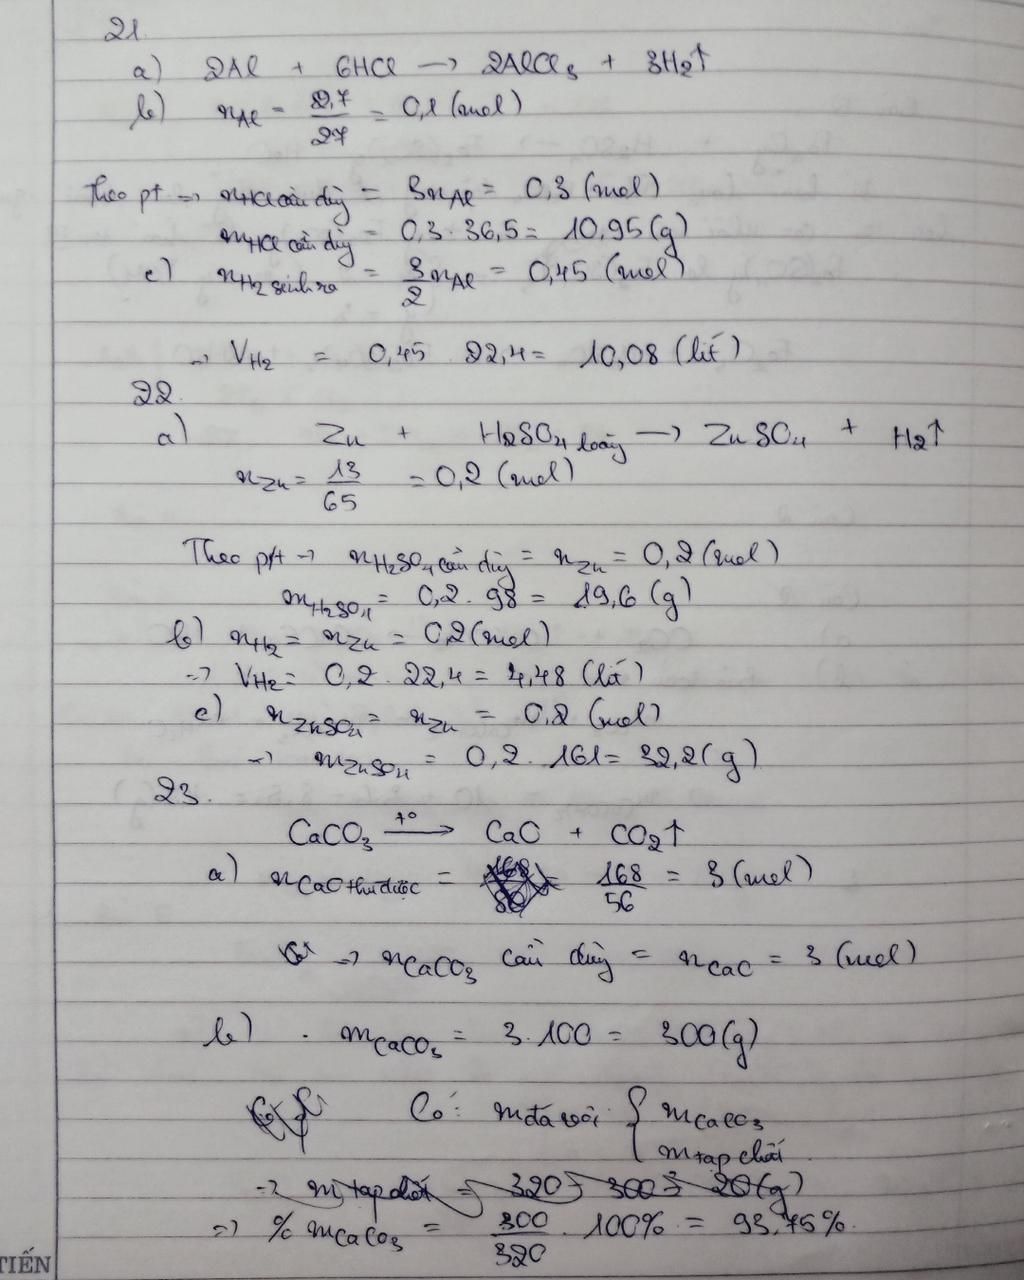 21.
a) 2Al + 6HCl → 2AlCl₃ + 3H₂↑
b) nAl = 2,7/27 = 0,1 (mol)
Theo pt → nHCl cần dùg = 3nAl = 0,3 (mol)
mHCl cần dùg = 0,3 . 36,5 = 10,95 (g)
c) nH₂ sinh ra = 3/2 nAl = 0,45 (mol)
→ VH₂ = 0,45 22,4 = 10,08 (lít)
22.
a) Zn + H₂SO₄ loãg → ZnSO₄ + H₂↑
nZn = 13/65 = 0,2 (mol)
Theo pt → nH₂SO₄ cần dùg = nZn = 0,2 (mol)
mH₂SO₄ = 0,2 . 98 = 19,6 (g)
b) nH₂ = nZn = 0,2 (mol)
→ VH₂ = 0,2 . 22,4 = 4,48 (lít)
c) nZnSO₄ = nZn = 0,2 (mol)
→ mZnSO₄ = 0,2 . 161 = 32,2 (g)
23.
CaCO₃ →(t°) CaO + CO₂↑
a) nCaO thu được = 168/56 = 3 (mol)
→ nCaCO₃ cần dùg = nCaO = 3 (mol)
b) . mCaCO₃ = 3 . 100 = 300 (g)
Có: m đá vôi { mCaCO₃
m tạp chất
→ m tạp chất = 320 - 300 = 20 (g)
→ % mCaCO₃ = 300/320 . 100% = 93,75%.
TIẾN